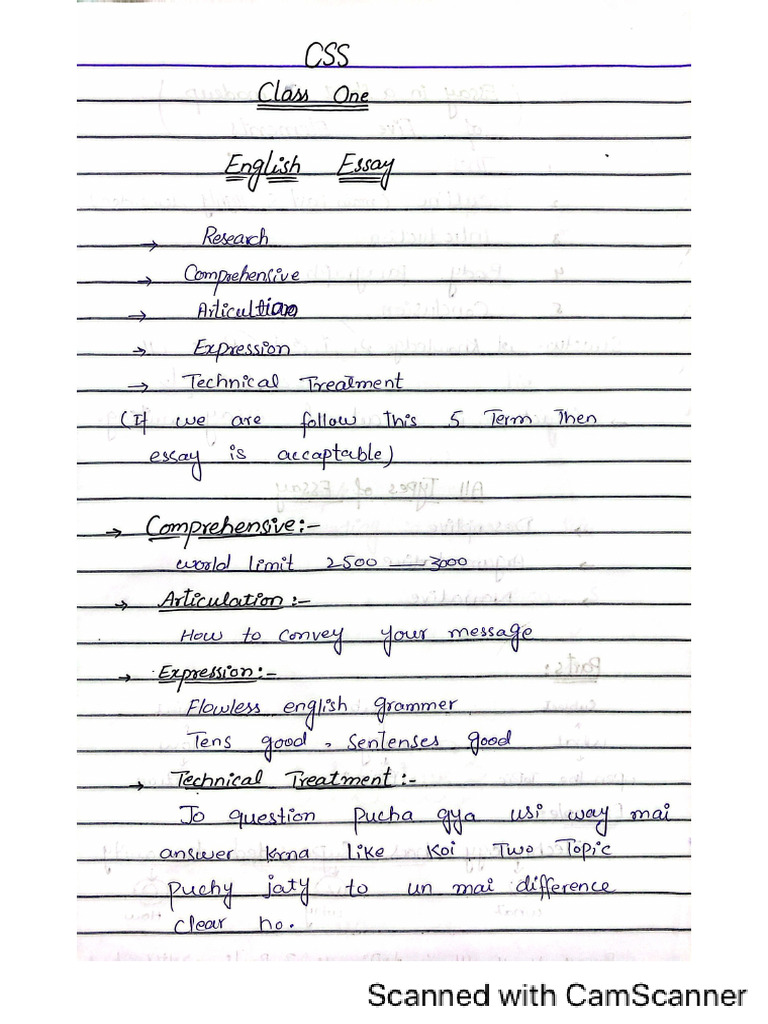 CSS
Class One
English Essay
→ Research
→ Comprehensive
→ Articultion
→ Expression
→ Technical Treatment
(If we are follow this 5 Term then
essay is accaptable)
→ Comprehensive:-
world limit 2500 — 3000
→ Articulation:-
How to convey your message
→ Expression:-
Flowless english grammer
Tens good, sentenses good
→ Technical Treatment:-
Jo question pucha gya usi way mai
answer krna like koi Two Topic
puchy jaty to un mai difference
clear ho.
Scanned with CamScanner